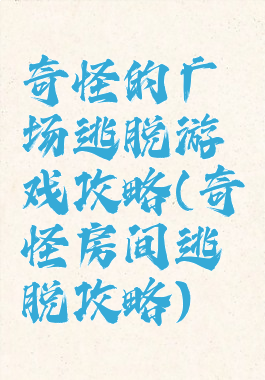 奇怪的广
场逃脱游
戏攻略(奇
怪房间逃
脱攻略)